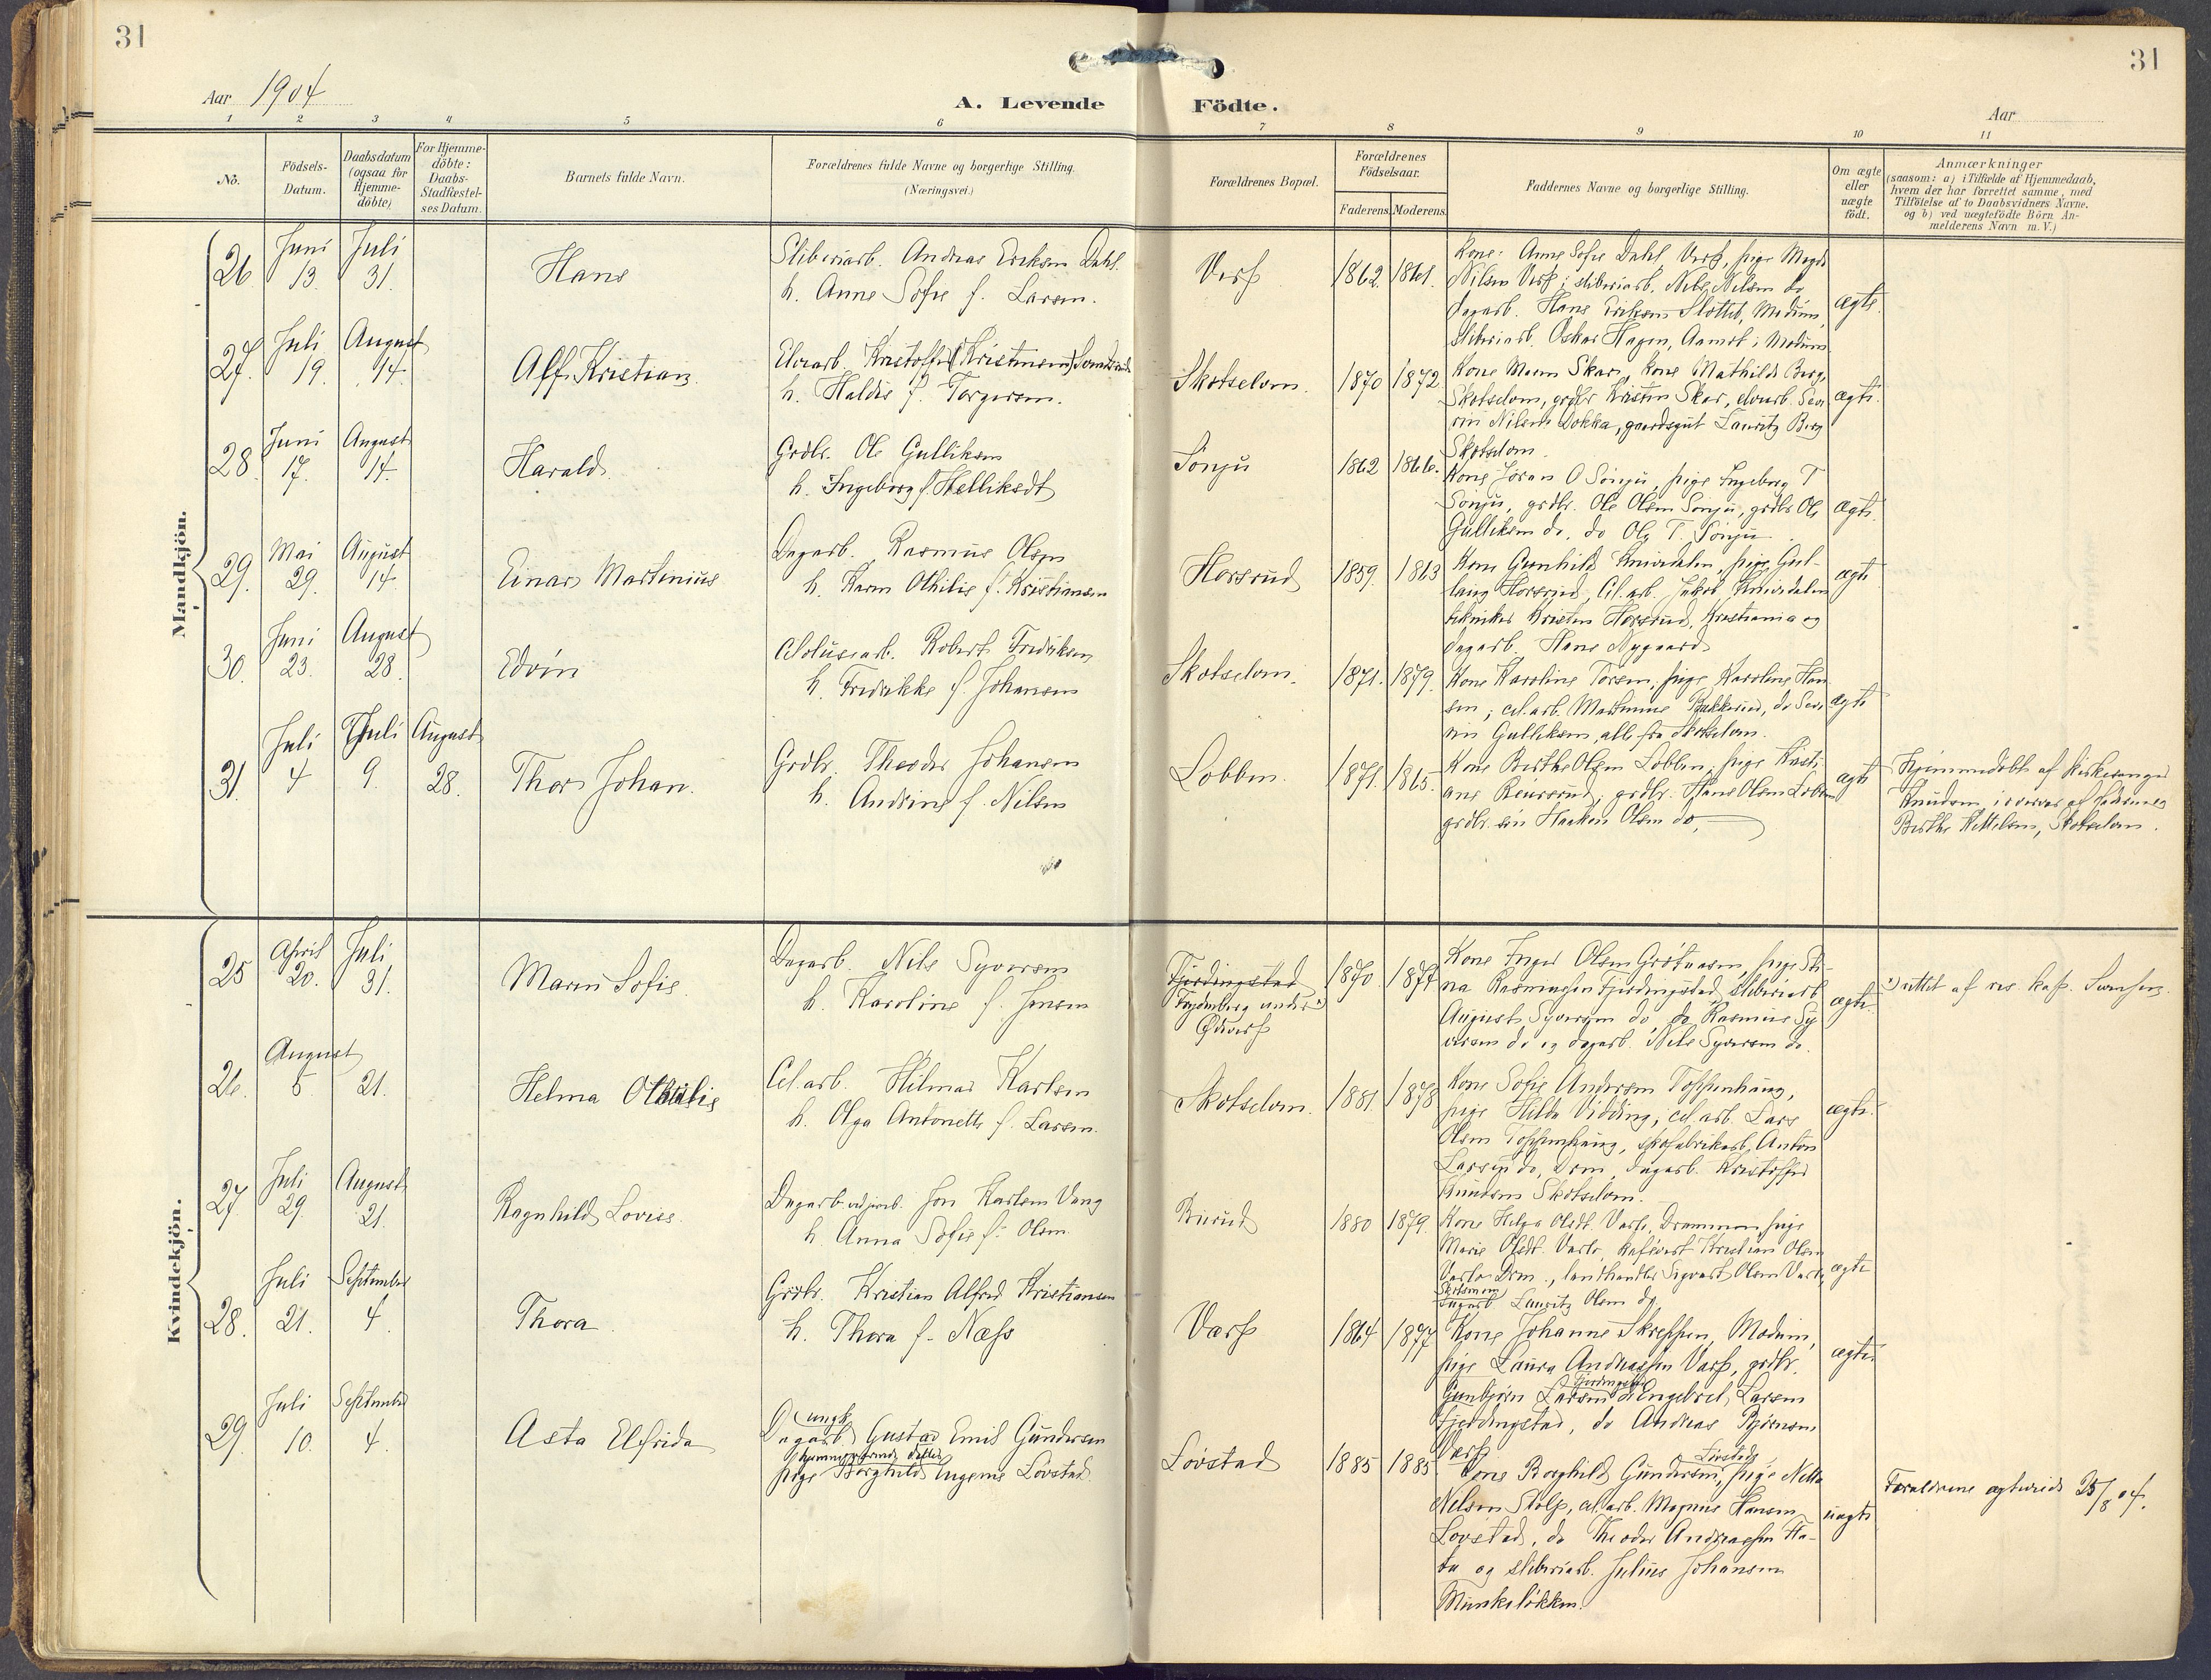 31
31
Aar 1904
A. Levende
Födte.
Aar
1 2 3 4 5 6 7 8 9 10 11
No.
Födsels-Datum.
Daabsdatum (ogsaa for Hjemme-döbte)
For Hjemme-döbte: Daabs-Stadfæstel-ses Datum.
Barnets fulde Navn.
Forældrenes fulde Navne og borgerlige Stilling.
(Næringsvei.)
Forældrenes Bopæl.
Forældrenes Födselsaar.
Faderens. Moderens.
Faddernes Navne og borgerlige Stilling.
Om ægte eller uægte födt.
Anmærkninger
(saasom: a) i Tilfælde af Hjemmedaab,
hvem der har forrettet samme, med
Tilföielse af to Daabsvidners Navne.
og b) ved uægtefödte Börn An-
melderens Navn m. V.)
Mandkjön.
26. Juni 13. Juli 31.
Hans
Sliberiarb. Andreas Eriksen Dahl.
h. Anne Sofie f. Larsen.
Verp 1862. 1861.
Kone: Anne Sofie Dahl, Verp, pige
Nilsen Verp; sliberiarb. Nils Nilsen do
dagarb. Hans Eriksen Slottet, Modum,
sliberiarb. Oskar Hagen, Aamot i Modum
ægte.
27. Juli 19. August 14.
Alf Kristian.
h. Haldis f. Torgersen.
Skotselven. 1870 1872
Kone Maren Skar, kone Mathilde Berg,
Skotselven, grdbr Kristen Skar, elvearb. Seve
rin Nilsen Dokka, gaardsgut Lauritz Berg
Skotselven.
ægte.
28. Juni 17. August 14.
Harald.
Grdbr. Ole Gulliksen
h. Ingeborg f. Helliksdt
Sönju 1862 1866.
Kone Joran O Sönju, pige Ingeborg T
Sönju, grdbr. Ole Olsen Sönju, grdbr Ole
Gulliksen do, do Ole T. Sönju
ægte.
29. Mai 29. August 14.
Einar Martinius
Dagarb. Rasmus Olsen
h. Karen Othilie f. Kristiansen
Horsrud 1859. 1863
Kone Gunhild Knivedalen, pige Gul-
laug Horsrud, Cel. arb. Jakob Knivedalen
tekniker Kristen Horsrud, Kristiania og
dagarb. Hans Nygaard
ægte
30. Juni 23. August 28.
Edvin
Celulosearb. Robert Fredriksen
h. Fredrikke f. Johansen
Skotselven. 1871. 1879.
Kone Karoline Torsen, pige Karoline Han
sen; cel. arb. Bakkerud, do Seve
rin Gulliksen, alle fra Skotselven.
ægte
31. Juli 4 Juli 9. August 28.
Thor Johan.
Grdbr. Theodor Johansen
h. Andrine f. Nilsen
Lobben. 1871. 1865.
Kone Birthe Olsen Lobben; pige Kristi-
ane grdbr. Hans Olsen Lobben
grdbr. sön Haaken Olsen do.
ægte
Hjemmedöbt af kirkesanger
Knudsen, i overvær af
Birthe Kittelsen, Skotselven.
Kvindekjön.
25 April 20. Juli 31.
Maren Sofie.
Dagarb. Nils Syversen
h. Karoline f. Jensen
Fjerdingstad
under
1870. 1877
Kone Inger Olsen pige Sti-
na Rasmussen Fjerdingstad, sliberiarb
August Syversen do, do Rasmus Sy
versen do og dagarb. Nils Syversen do.
ægte.
rettet af res. kap. Svensen.
26. August 5 21.
Helma Othilie
Cel. arb. Hilmar Karlsen
h. Olga Antonette f. Larsen.
Skotselven. 1881. 1878
Kone Sofie Andersen Toppenhaug,
pige Hilda Vidding, cel. arb. Lars
Olsen Toppenhaug, skofabrikarb. Anton
Larsen do, Drm, dagarb. Kristoffer
Knudsen Skotselven.
ægte.
27. Juli 29. August 21.
Ragnhild Lovise.
Dagarb. Jon Karlsen Vang
h. Anna Sofie f. Olsen.
1880 1879.
Kone Helga Olsdt. Varlo, Drammen, pige
Marie Olsdt. Varlo, kafévert Kristian Olsen
Varlo Drm., landhandler Sigvart Olsen Varlo,
Lauritz Olsen do
ægte
28. Juli 21. September 4.
Thora
Grdbr. Kristian Alfred Kristiansen
h. Thora f. Næss
Varp 1864 1877
Kone Johanne Modum,
pige Laura Andreassen Varp, grdbr.
Gunbjörn Larsen Fjerdingstad, Engebret Larsen
Fjerdingstad, do Andreas Björnsen
Varp
ægte
29. Juli 10. September 4.
Asta Elfrida
Ungk.
Dagarb. Gustav Emil Gundersen
pige Borghild Ingenie Lövstad.
Lövstad 1885 1885
Kone Borghild Gundersen, Lövstad, pige Netta
Nelsen Stolp, cel. arb. Magnus Hansen,
Lövstad, do Theodor Andreassen
og sliberiarb. Julius Johansen
Munkelökken.
uægte
Forældrene ægteviede 25/8 04.